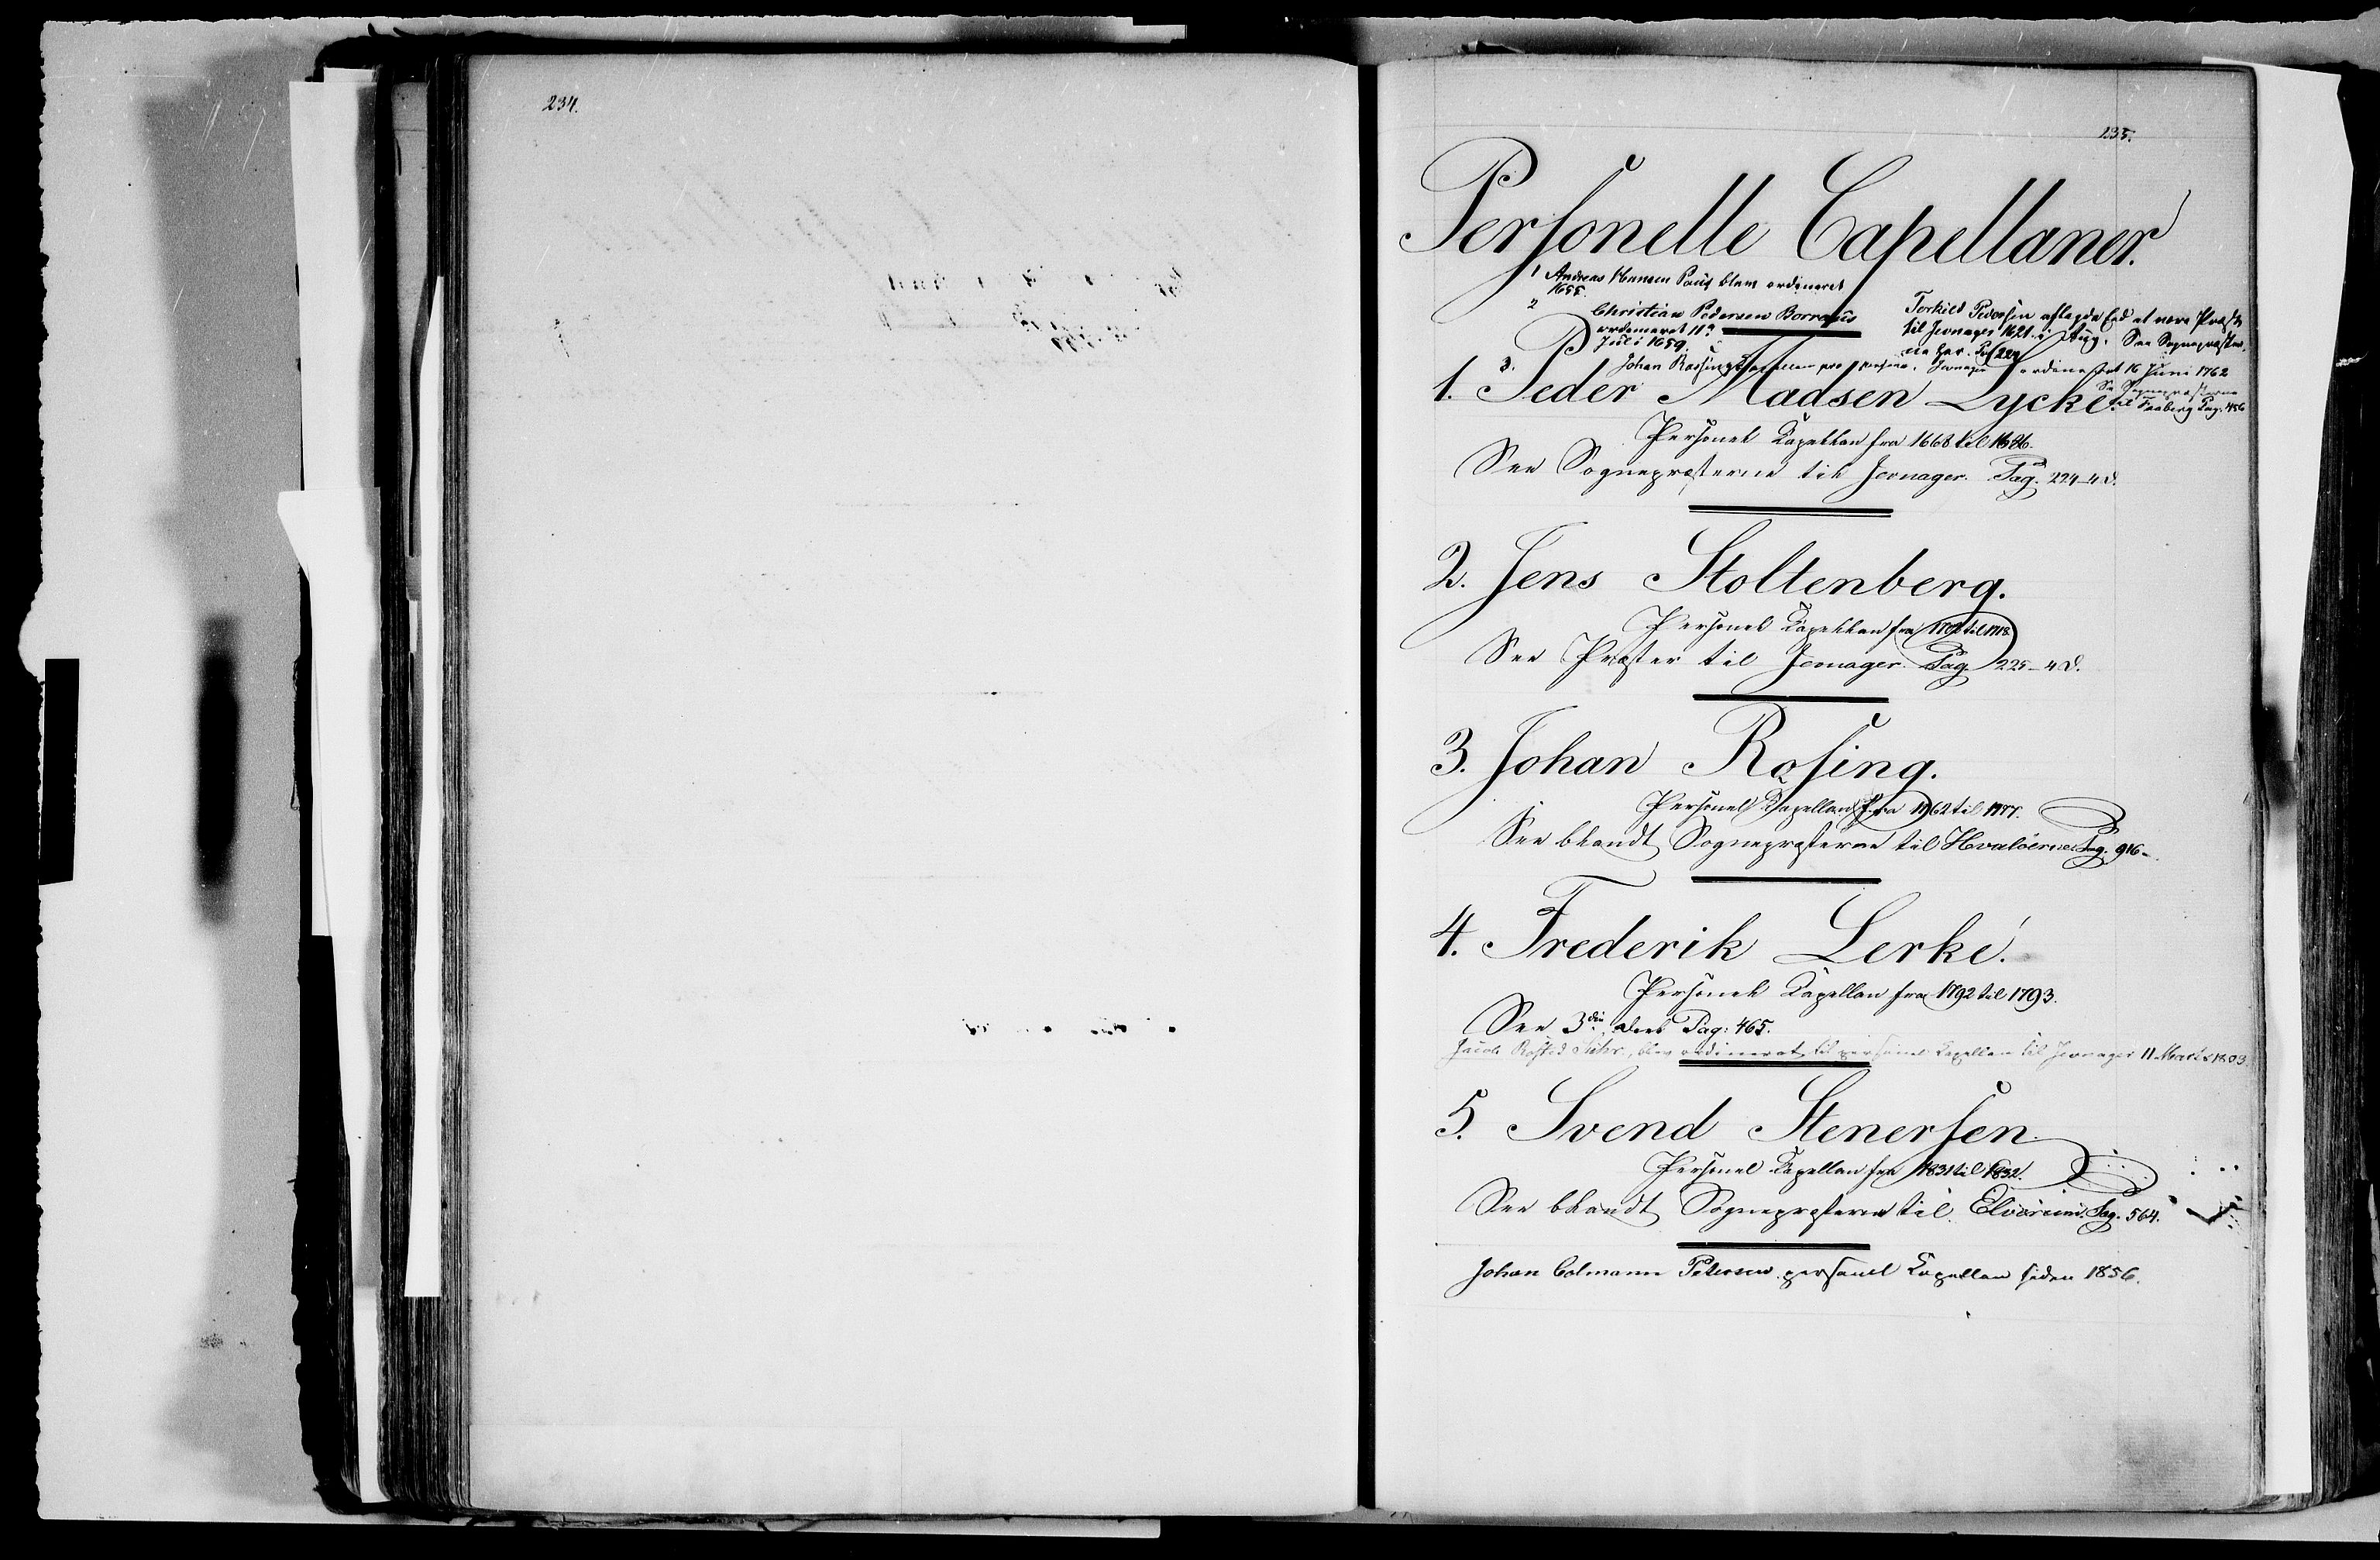 234.
235.
Personelle Capellaner.
1 Andreas Hansen Paus blev ordineret
1655.
2 Christian Pedersen Borrasius
ordineret 11?
Juli 1659.
Torkild Pedersen aflagde Eed at være Præst
til Jevnager 1621 i Aug. See Sognepræster
ne her. Pag 224
3. Johan Rossing Capellan pro persona, Jevnager ordineret 16 Juni 1762
See Sognepræsterne
til Faaberg Pag. 456
1. Peder Madsen Lycke.
Personel Kapellan fra 1668 til 1686.
See Sognepræsterne til Jevnager. Pag. 224-4 d.
2. Jens Stoltenberg.
Personel Kapellan fra til 1718.
See Præster til Jevnager. Pag. 225-4 d.
3. Johan Rosing.
Personel Kapellan fra 1762 til 1777.
See blandt Sognepræsterne til Hvaløerne Pag. 916-
4. Frederik Lerke.
Personel Kapellan fra 1792 til 1793.
See 3die Deel Pag: 465.
Jacob Rosted, blev ordineret til personel Kapellan til Jevnager 11 Marts 1803.
5. Svend Stenersen.
Personel Kapellan fra 1831 til 1832.
See blandt Sognepræsterne til Elverum. Pag. 564.
Johan Colmann Petersen personel Kapellan siden 1856.